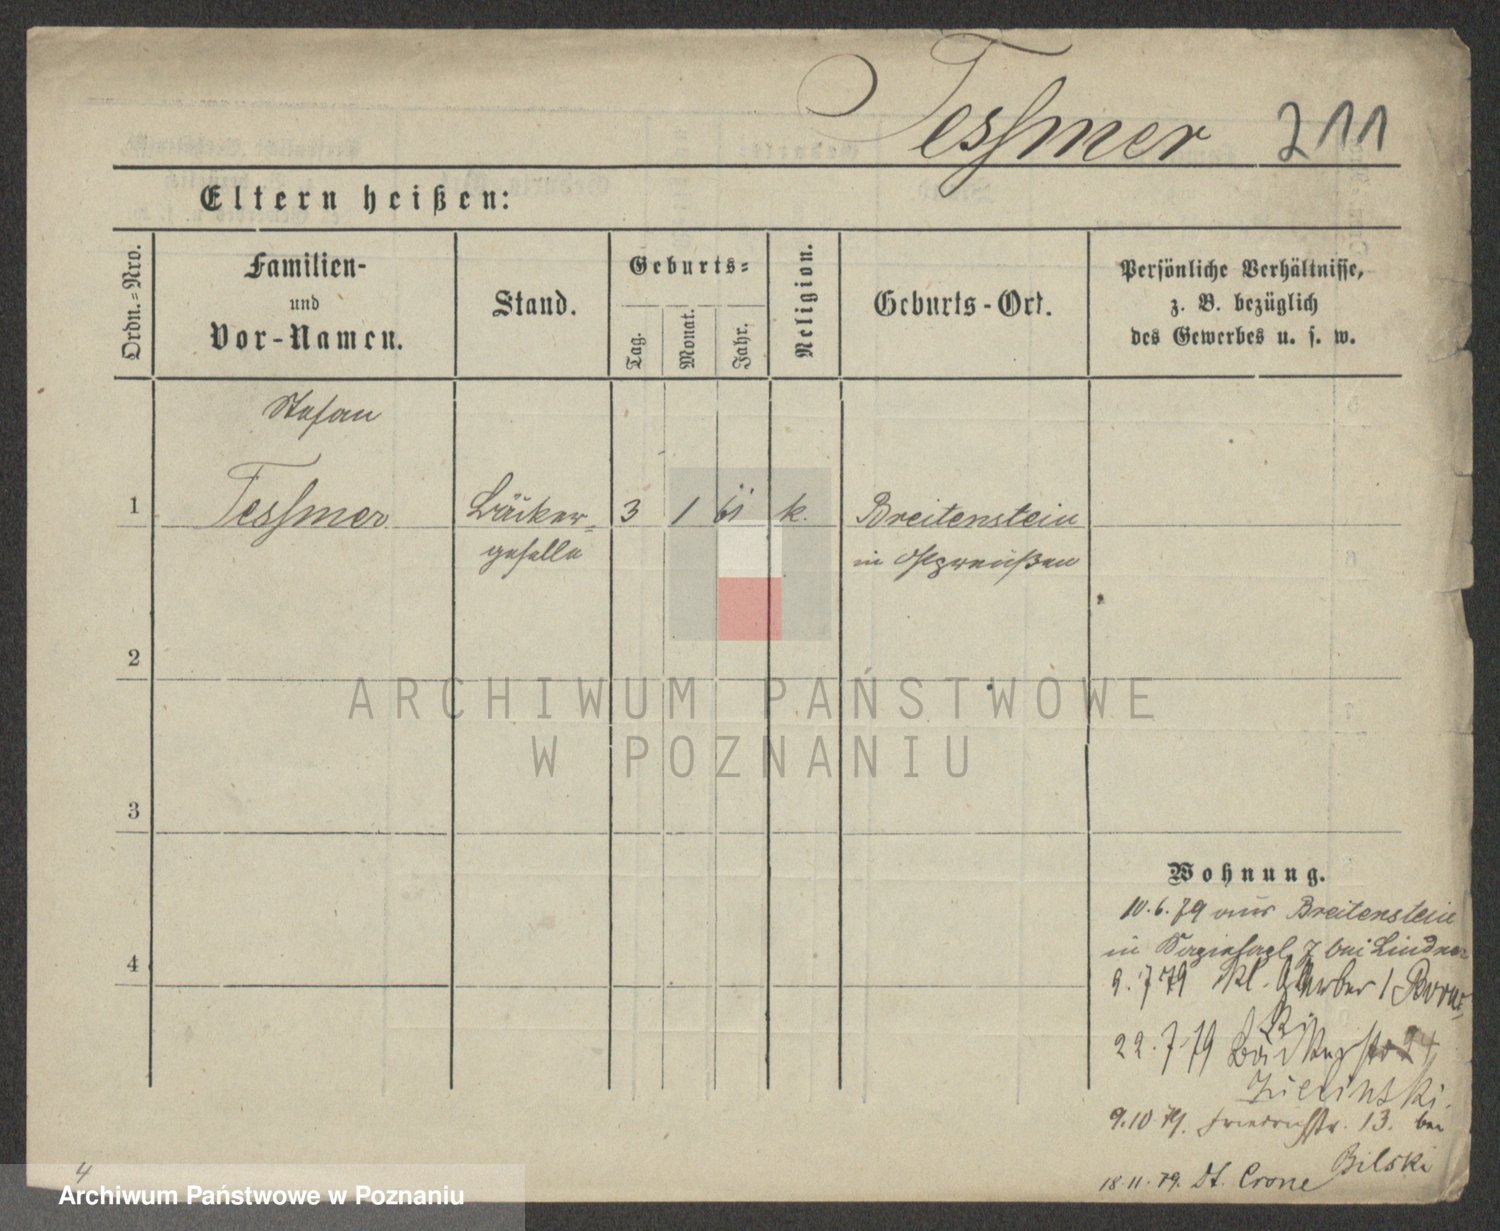 Tessmer 211
Eltern heißen:
Ordn.=Nro.
Familien-
und
Vor-Namen.
Stand.
Geburts=
Tag.
Monat.
Jahr.
Religion.
Geburts-Ort.
Persönliche Verhältnisse,
z. B. bezüglich
des Gewerbes u. s. w.
Stefan
1 Tessmer Bäcker= 3 1 61 k. Breitenstein
geselle in Ostpreußen
2
ARCHIWUM PAŃSTWOWE
W POZNANIU
3
Wohnung.
10.6.79 aus Breitenstein
4
in 7 bei Lindner
9.7 79 Kl. Gerber 1
22.7.79 Bäckerstr 24
Zielinski.
9.10.79. Friedrichstr. 13. bei
Bilski
18.11.79. Dt. Crone
4
Archiwum Państwowe w Poznaniu